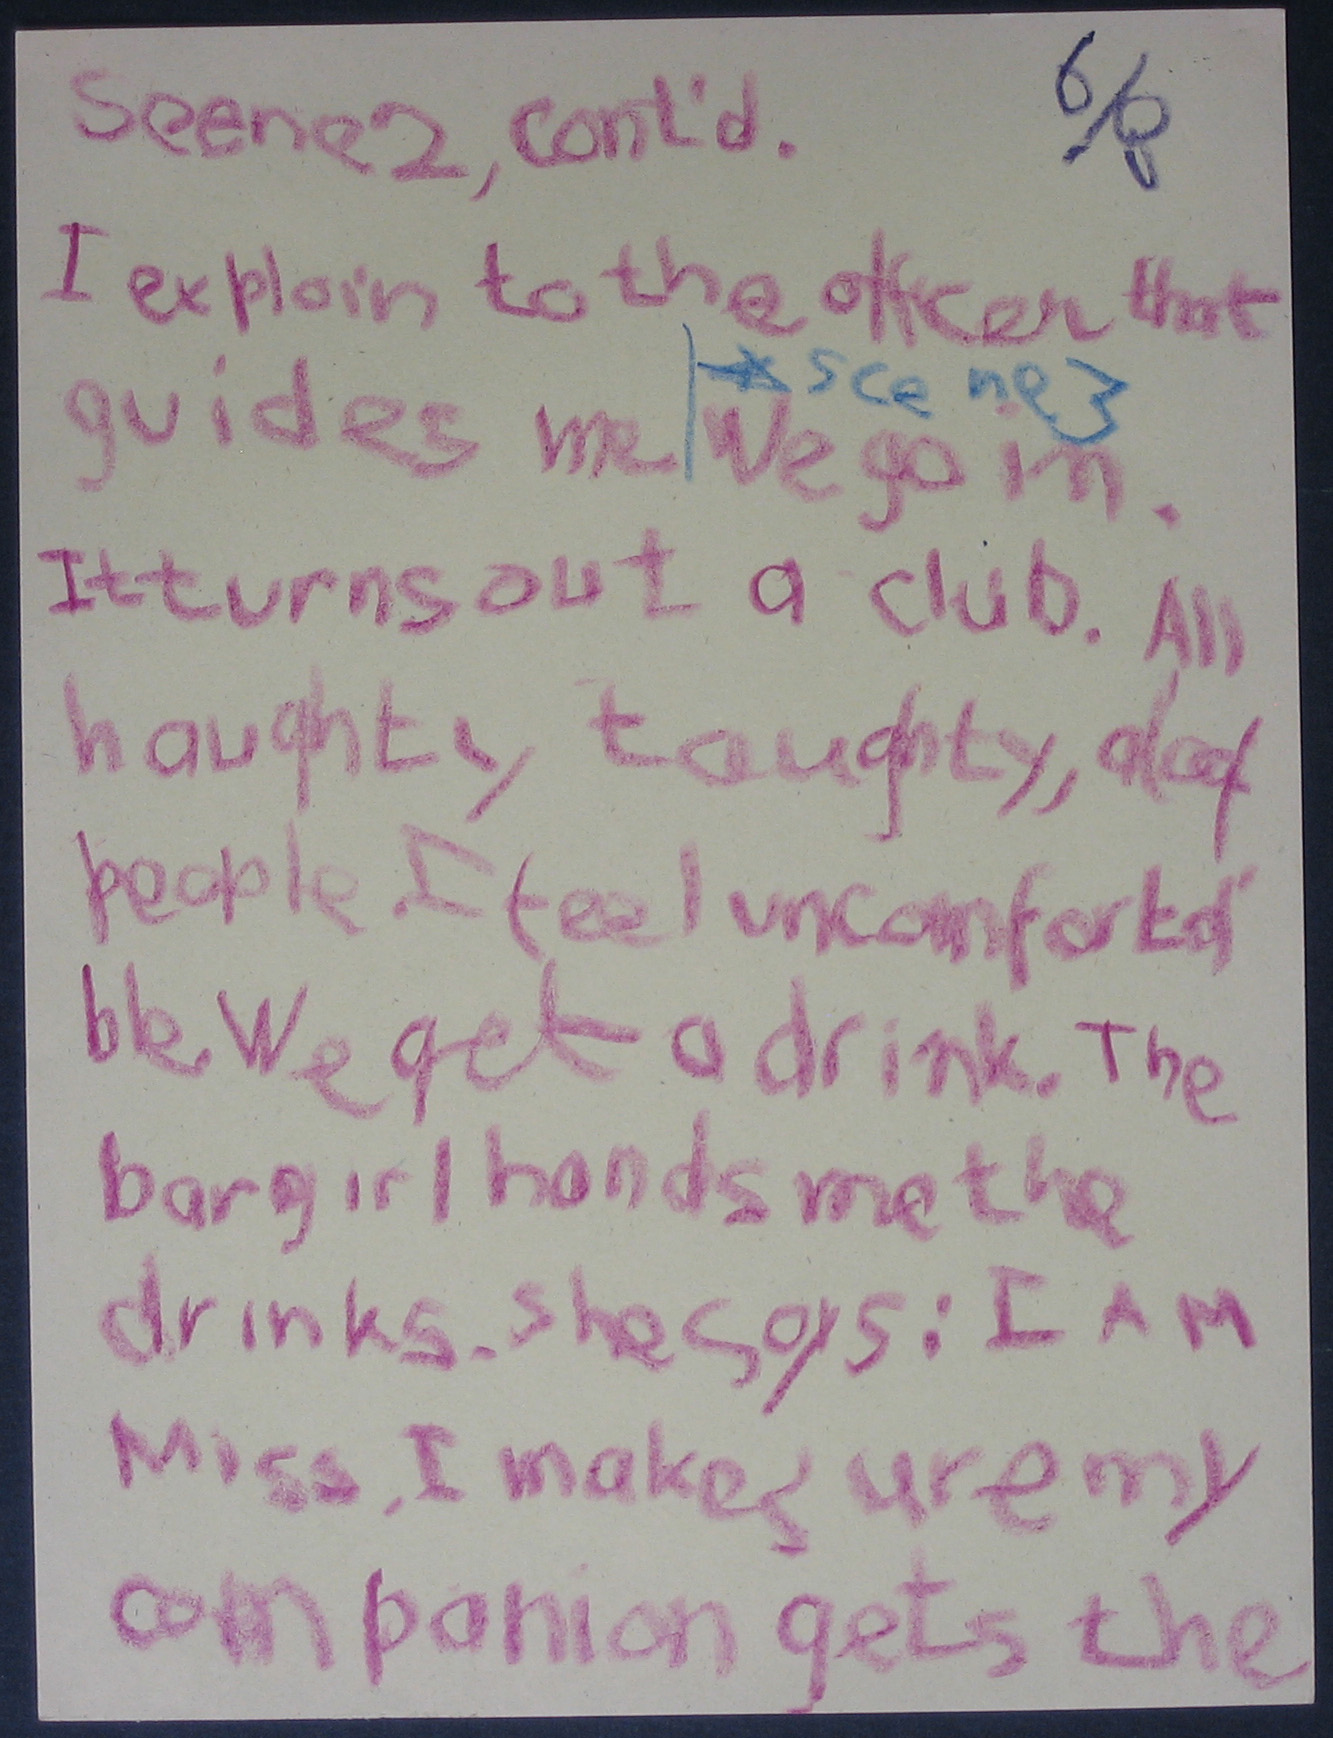 Scene 2, cont'd.
6/8
I explain to the officer that
→ scene 3
guides me | We go in.
It turns out a club. All
haughty, taughty, deaf
people. I feel uncomforta
ble. We get a drink. The
bargirl hands me the
drinks. She says: I AM
Miss. I make sure my
companion gets the